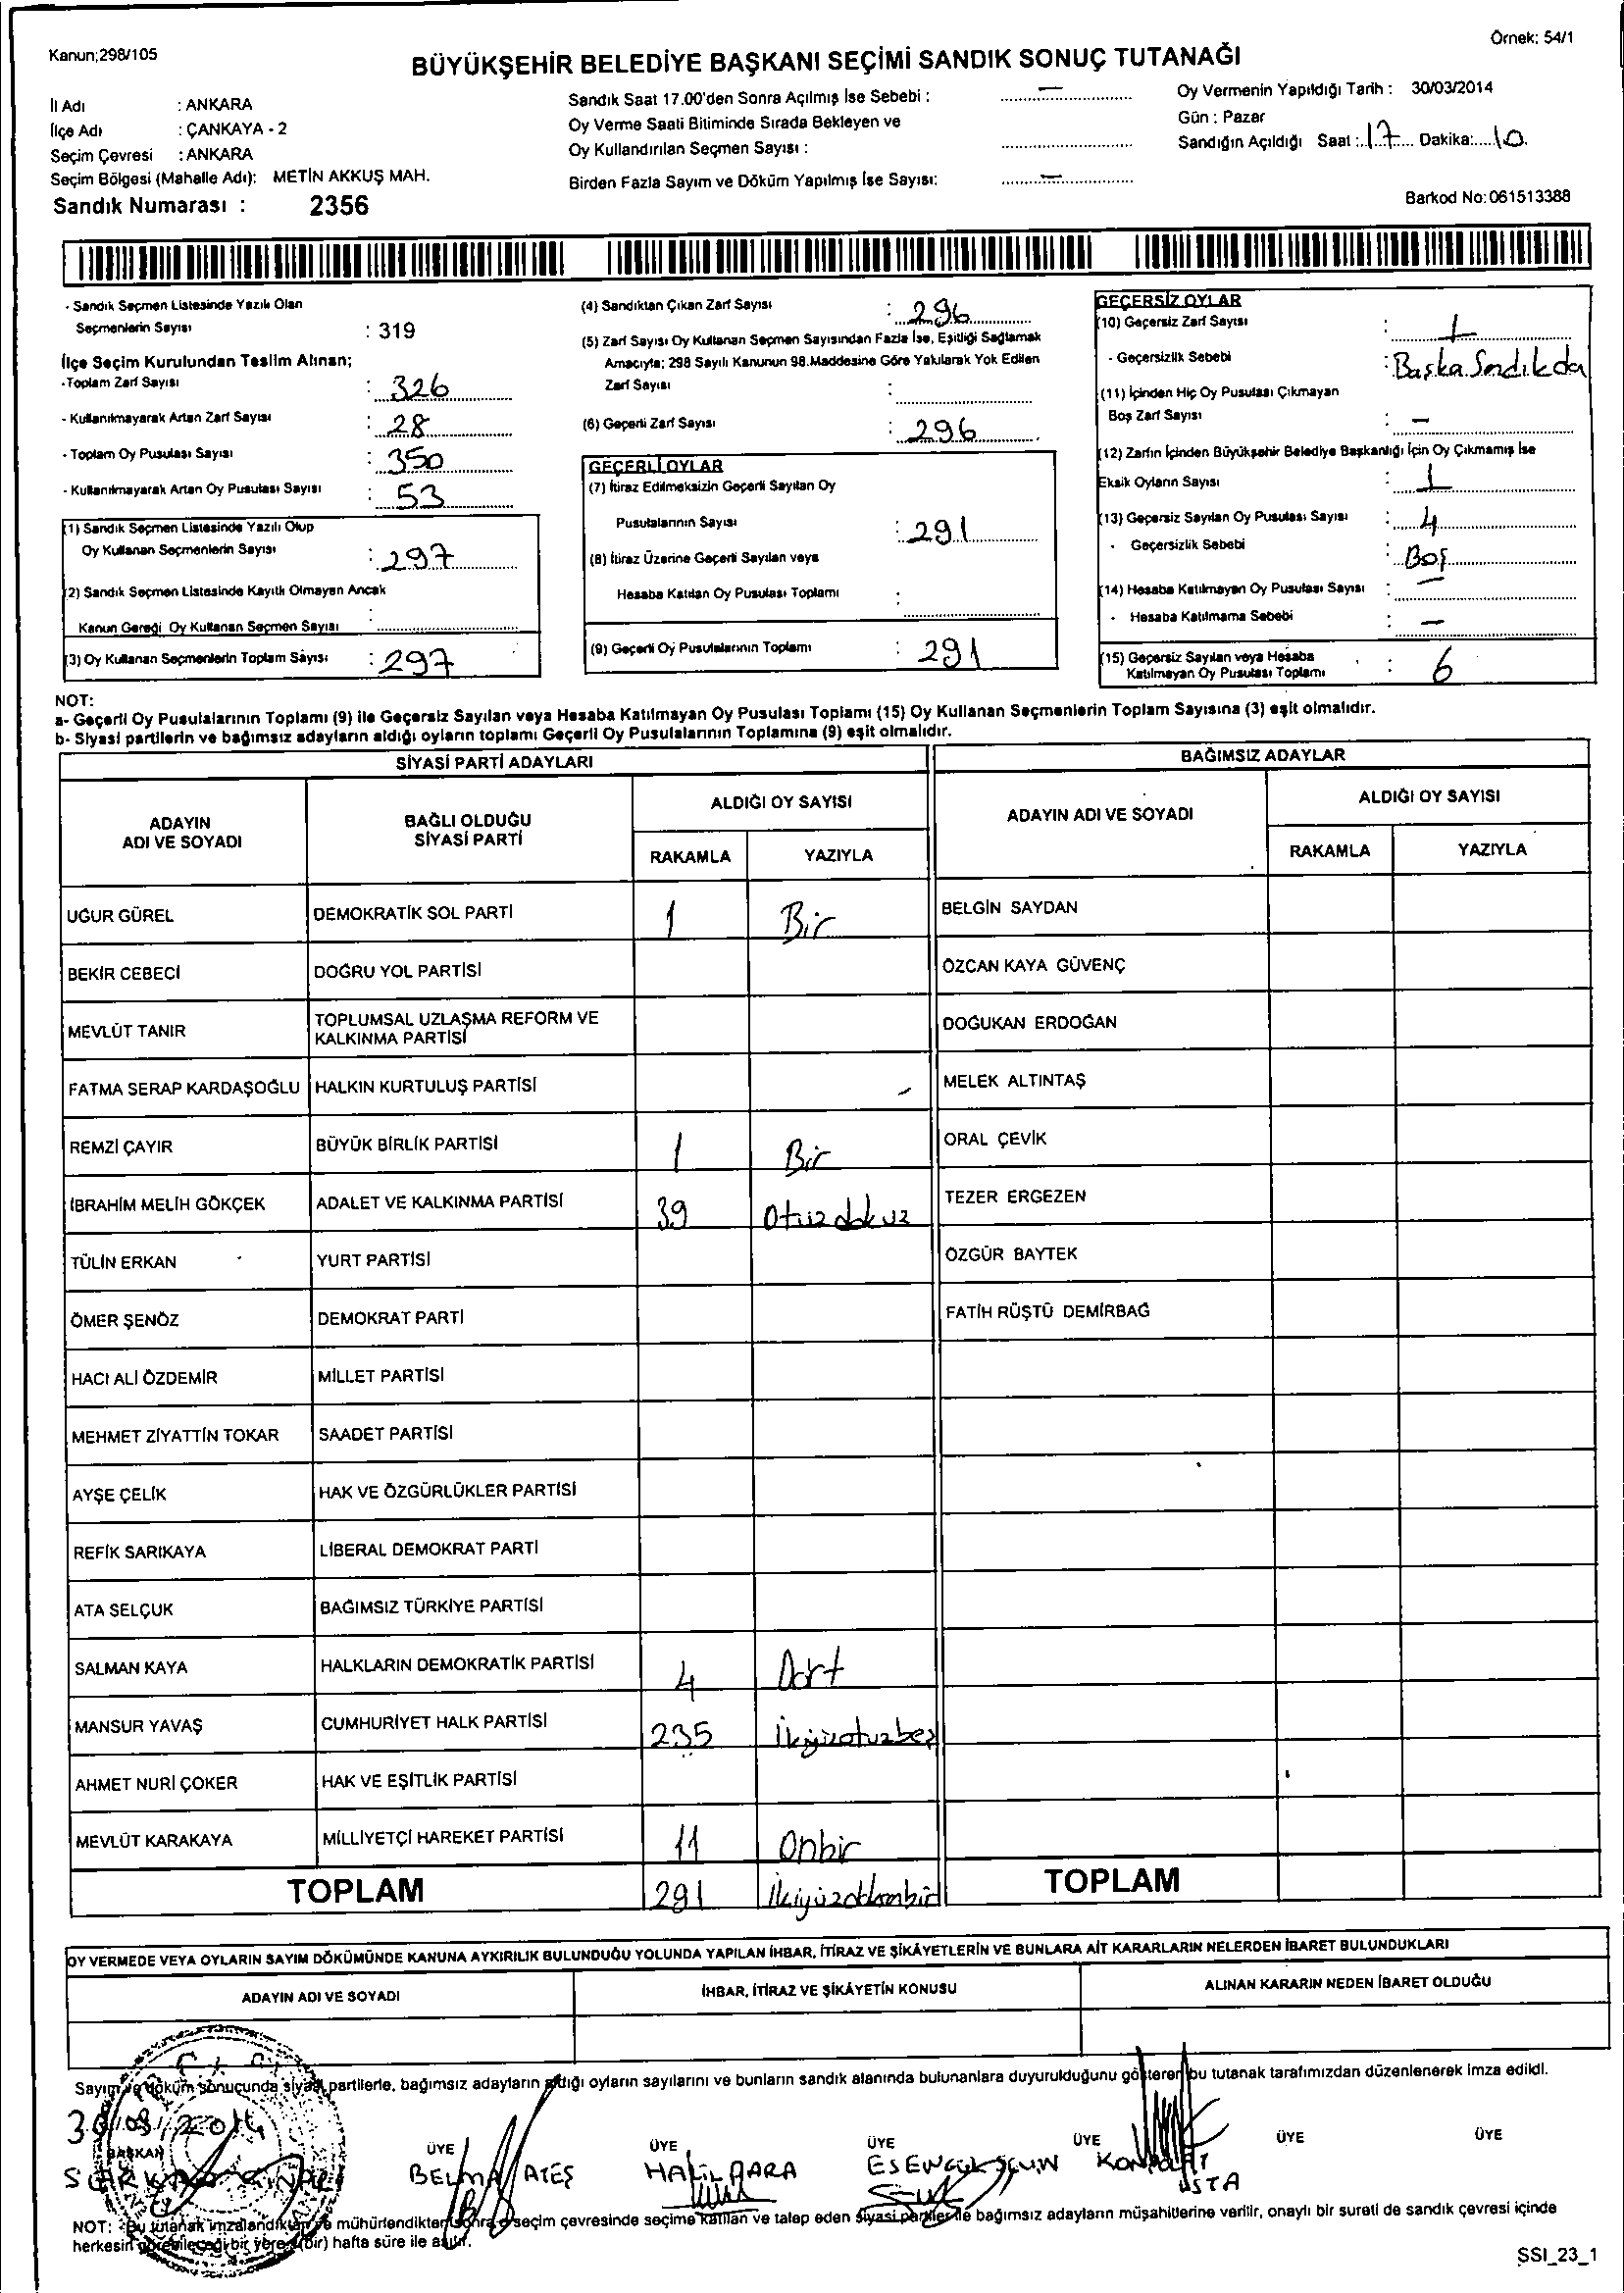 Kanun;298/105
Örnek: 54/1
BÜYÜKŞEHİR BELEDİYE BAŞKANI SEÇİMİ SANDIK SONUÇ TUTANAĞI
İl Adı : ANKARA
İlçe Adı : ÇANKAYA - 2
Seçim Çevresi : ANKARA
Seçim Bölgesi (Mahalle Adı): METİN AKKUŞ MAH.
Sandık Numarası : 2356
Sandık Saat 17.00'den Sonra Açılmış İse Sebebi : —
Oy Verme Saati Bitiminde Sırada Bekleyen ve
Oy Kullandırılan Seçmen Sayısı :
Birden Fazla Sayım ve Döküm Yapılmış İse Sayısı: —
Oy Vermenin Yapıldığı Tarih : 30/03/2014
Gün : Pazar
Sandığın Açıldığı Saat : 17 Dakika: 10
Barkod No: 061513388
- Sandık Seçmen Listesinde Yazılı Olan
Seçmenlerin Sayısı : 319
İlçe Seçim Kurulundan Teslim Alınan;
-Toplam Zarf Sayısı : 326
- Kullanılmayarak Artan Zarf Sayısı : 28
- Toplam Oy Pusulası Sayısı : 350
- Kullanılmayarak Artan Oy Pusulası Sayısı : 53
(1) Sandık Seçmen Listesinde Yazılı Olup
Oy Kullanan Seçmenlerin Sayısı : 297
(2) Sandık Seçmen Listesinde Kayıtlı Olmayan Ancak
Kanun Gereği Oy Kullanan Seçmen Sayısı :
(3) Oy Kullanan Seçmenlerin Toplam Sayısı : 297
(4) Sandıktan Çıkan Zarf Sayısı : 296
(5) Zarf Sayısı Oy Kullanan Seçmen Sayısından Fazla İse, Eşitliği Sağlamak
Amacıyla; 298 Sayılı Kanunun 98.Maddesine Göre Yakılarak Yok Edilen
Zarf Sayısı :
(6) Geçerli Zarf Sayısı : 296
GEÇERLİ OYLAR
(7) İtiraz Edilmeksizin Geçerli Sayılan Oy
Pusulalarının Sayısı : 291
(8) İtiraz Üzerine Geçerli Sayılan veya
Hesaba Katılan Oy Pusulası Toplamı :
(9) Geçerli Oy Pusulalarının Toplamı : 291
GEÇERSİZ OYLAR
(10) Geçersiz Zarf Sayısı : 1
- Geçersizlik Sebebi : Başka Sandıkda
(11) İçinden Hiç Oy Pusulası Çıkmayan
Boş Zarf Sayısı : —
(12) Zarfın İçinden Büyükşehir Belediye Başkanlığı İçin Oy Çıkmamış İse
Eksik Oyların Sayısı : 1
(13) Geçersiz Sayılan Oy Pusulası Sayısı : 4
- Geçersizlik Sebebi : Boş
(14) Hesaba Katılmayan Oy Pusulası Sayısı : —
- Hesaba Katılmama Sebebi : —
(15) Geçersiz Sayılan veya Hesaba
Katılmayan Oy Pusulası Toplamı : 6
NOT:
a- Geçerli Oy Pusulalarının Toplamı (9) ile Geçersiz Sayılan veya Hesaba Katılmayan Oy Pusulası Toplamı (15) Oy Kullanan Seçmenlerin Toplam Sayısına (3) eşit olmalıdır.
b- Siyasi partilerin ve bağımsız adayların aldığı oyların toplamı Geçerli Oy Pusulalarının Toplamına (9) eşit olmalıdır.
SİYASİ PARTİ ADAYLARI
BAĞIMSIZ ADAYLAR
ADAYIN
ADI VE SOYADI
BAĞLI OLDUĞU
SİYASİ PARTİ
ALDIĞI OY SAYISI
RAKAMLA YAZIYLA
ADAYIN ADI VE SOYADI
ALDIĞI OY SAYISI
RAKAMLA YAZIYLA
UĞUR GÜREL DEMOKRATİK SOL PARTİ 1 Bir BELGİN SAYDAN
BEKİR CEBECİ DOĞRU YOL PARTİSİ ÖZCAN KAYA GÜVENÇ
MEVLÜT TANIR TOPLUMSAL UZLAŞMA REFORM VE
KALKINMA PARTİSİ DOĞUKAN ERDOĞAN
FATMA SERAP KARDAŞOĞLU HALKIN KURTULUŞ PARTİSİ MELEK ALTINTAŞ
REMZİ ÇAYIR BÜYÜK BİRLİK PARTİSİ 1 Bir ORAL ÇEVİK
İBRAHİM MELİH GÖKÇEK ADALET VE KALKINMA PARTİSİ 39 Otuzdokuz TEZER ERGEZEN
TÜLİN ERKAN YURT PARTİSİ ÖZGÜR BAYTEK
ÖMER ŞENÖZ DEMOKRAT PARTİ FATİH RÜŞTÜ DEMİRBAĞ
HACI ALİ ÖZDEMİR MİLLET PARTİSİ
MEHMET ZİYATTİN TOKAR SAADET PARTİSİ
AYŞE ÇELİK HAK VE ÖZGÜRLÜKLER PARTİSİ
REFİK SARIKAYA LİBERAL DEMOKRAT PARTİ
ATA SELÇUK BAĞIMSIZ TÜRKİYE PARTİSİ
SALMAN KAYA HALKLARIN DEMOKRATİK PARTİSİ 4 Dört
MANSUR YAVAŞ CUMHURİYET HALK PARTİSİ 235 İkiyüzotuzbeş
AHMET NURİ ÇOKER HAK VE EŞİTLİK PARTİSİ
MEVLÜT KARAKAYA MİLLİYETÇİ HAREKET PARTİSİ 11 Onbir
TOPLAM 291 TOPLAM
OY VERMEDE VEYA OYLARIN SAYIM DÖKÜMÜNDE KANUNA AYKIRILIK BULUNDUĞU YOLUNDA YAPILAN İHBAR, İTİRAZ VE ŞİKÂYETLERİN VE BUNLARA AİT KARARLARIN NELERDEN İBARET BULUNDUKLARI
ADAYIN ADI VE SOYADI İHBAR, İTİRAZ VE ŞİKÂYETİN KONUSU ALINAN KARARIN NEDEN İBARET OLDUĞU
Sayım ve döküm sonucunda siyasi partilerle, bağımsız adayların aldığı oyların sayılarını ve bunların sandık alanında bulunanlara duyurulduğunu gösteren bu tutanak tarafımızdan düzenlenerek imza edildi.
30/03/2014
BAŞKAN ÜYE ÜYE ÜYE ÜYE ÜYE ÜYE
BELMA ATEŞ HALİL
USTA
NOT: Bu tutanak imzalandıktan ve mühürlendikten sonra seçim çevresinde seçime katılan ve talep eden siyasi partiler ile bağımsız adayların müşahitlerine verilir, onaylı bir sureti de sandık çevresi içinde
herkesin görebileceği bir yere (bir) hafta süre ile asılır.
SSI_23_1